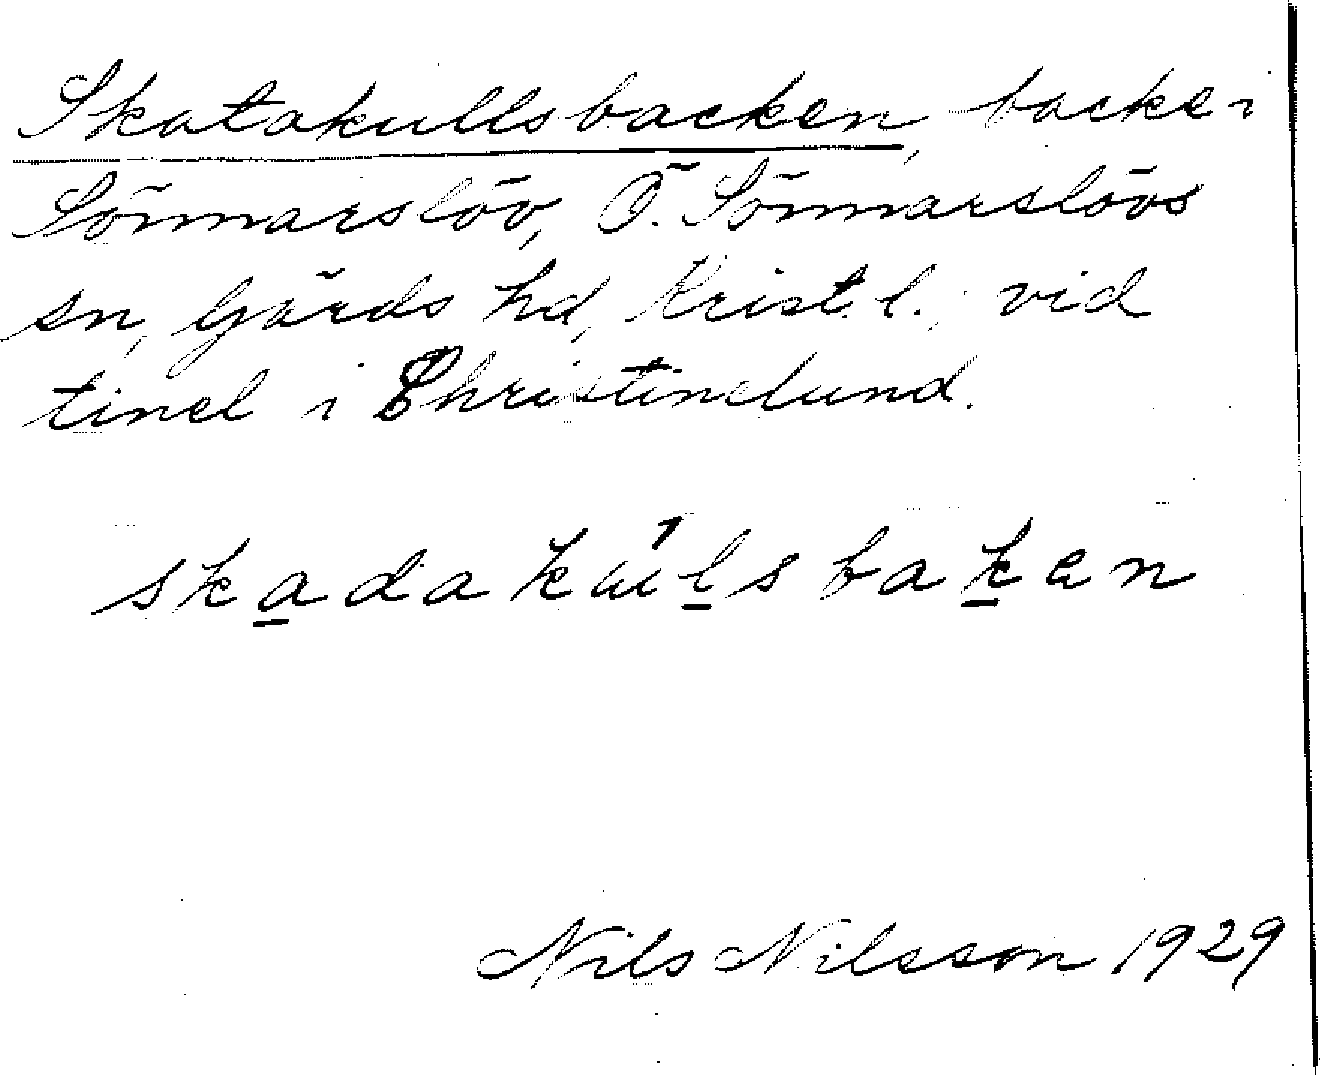 Skatakullsbacken, backe i
Sönnarslöv, Ö. Sönnarslövs
sn, Gärds hd, Krist. l.; vid
tinel i Christinelund.
skadakúlsbaken
Nils Nilsson 1929